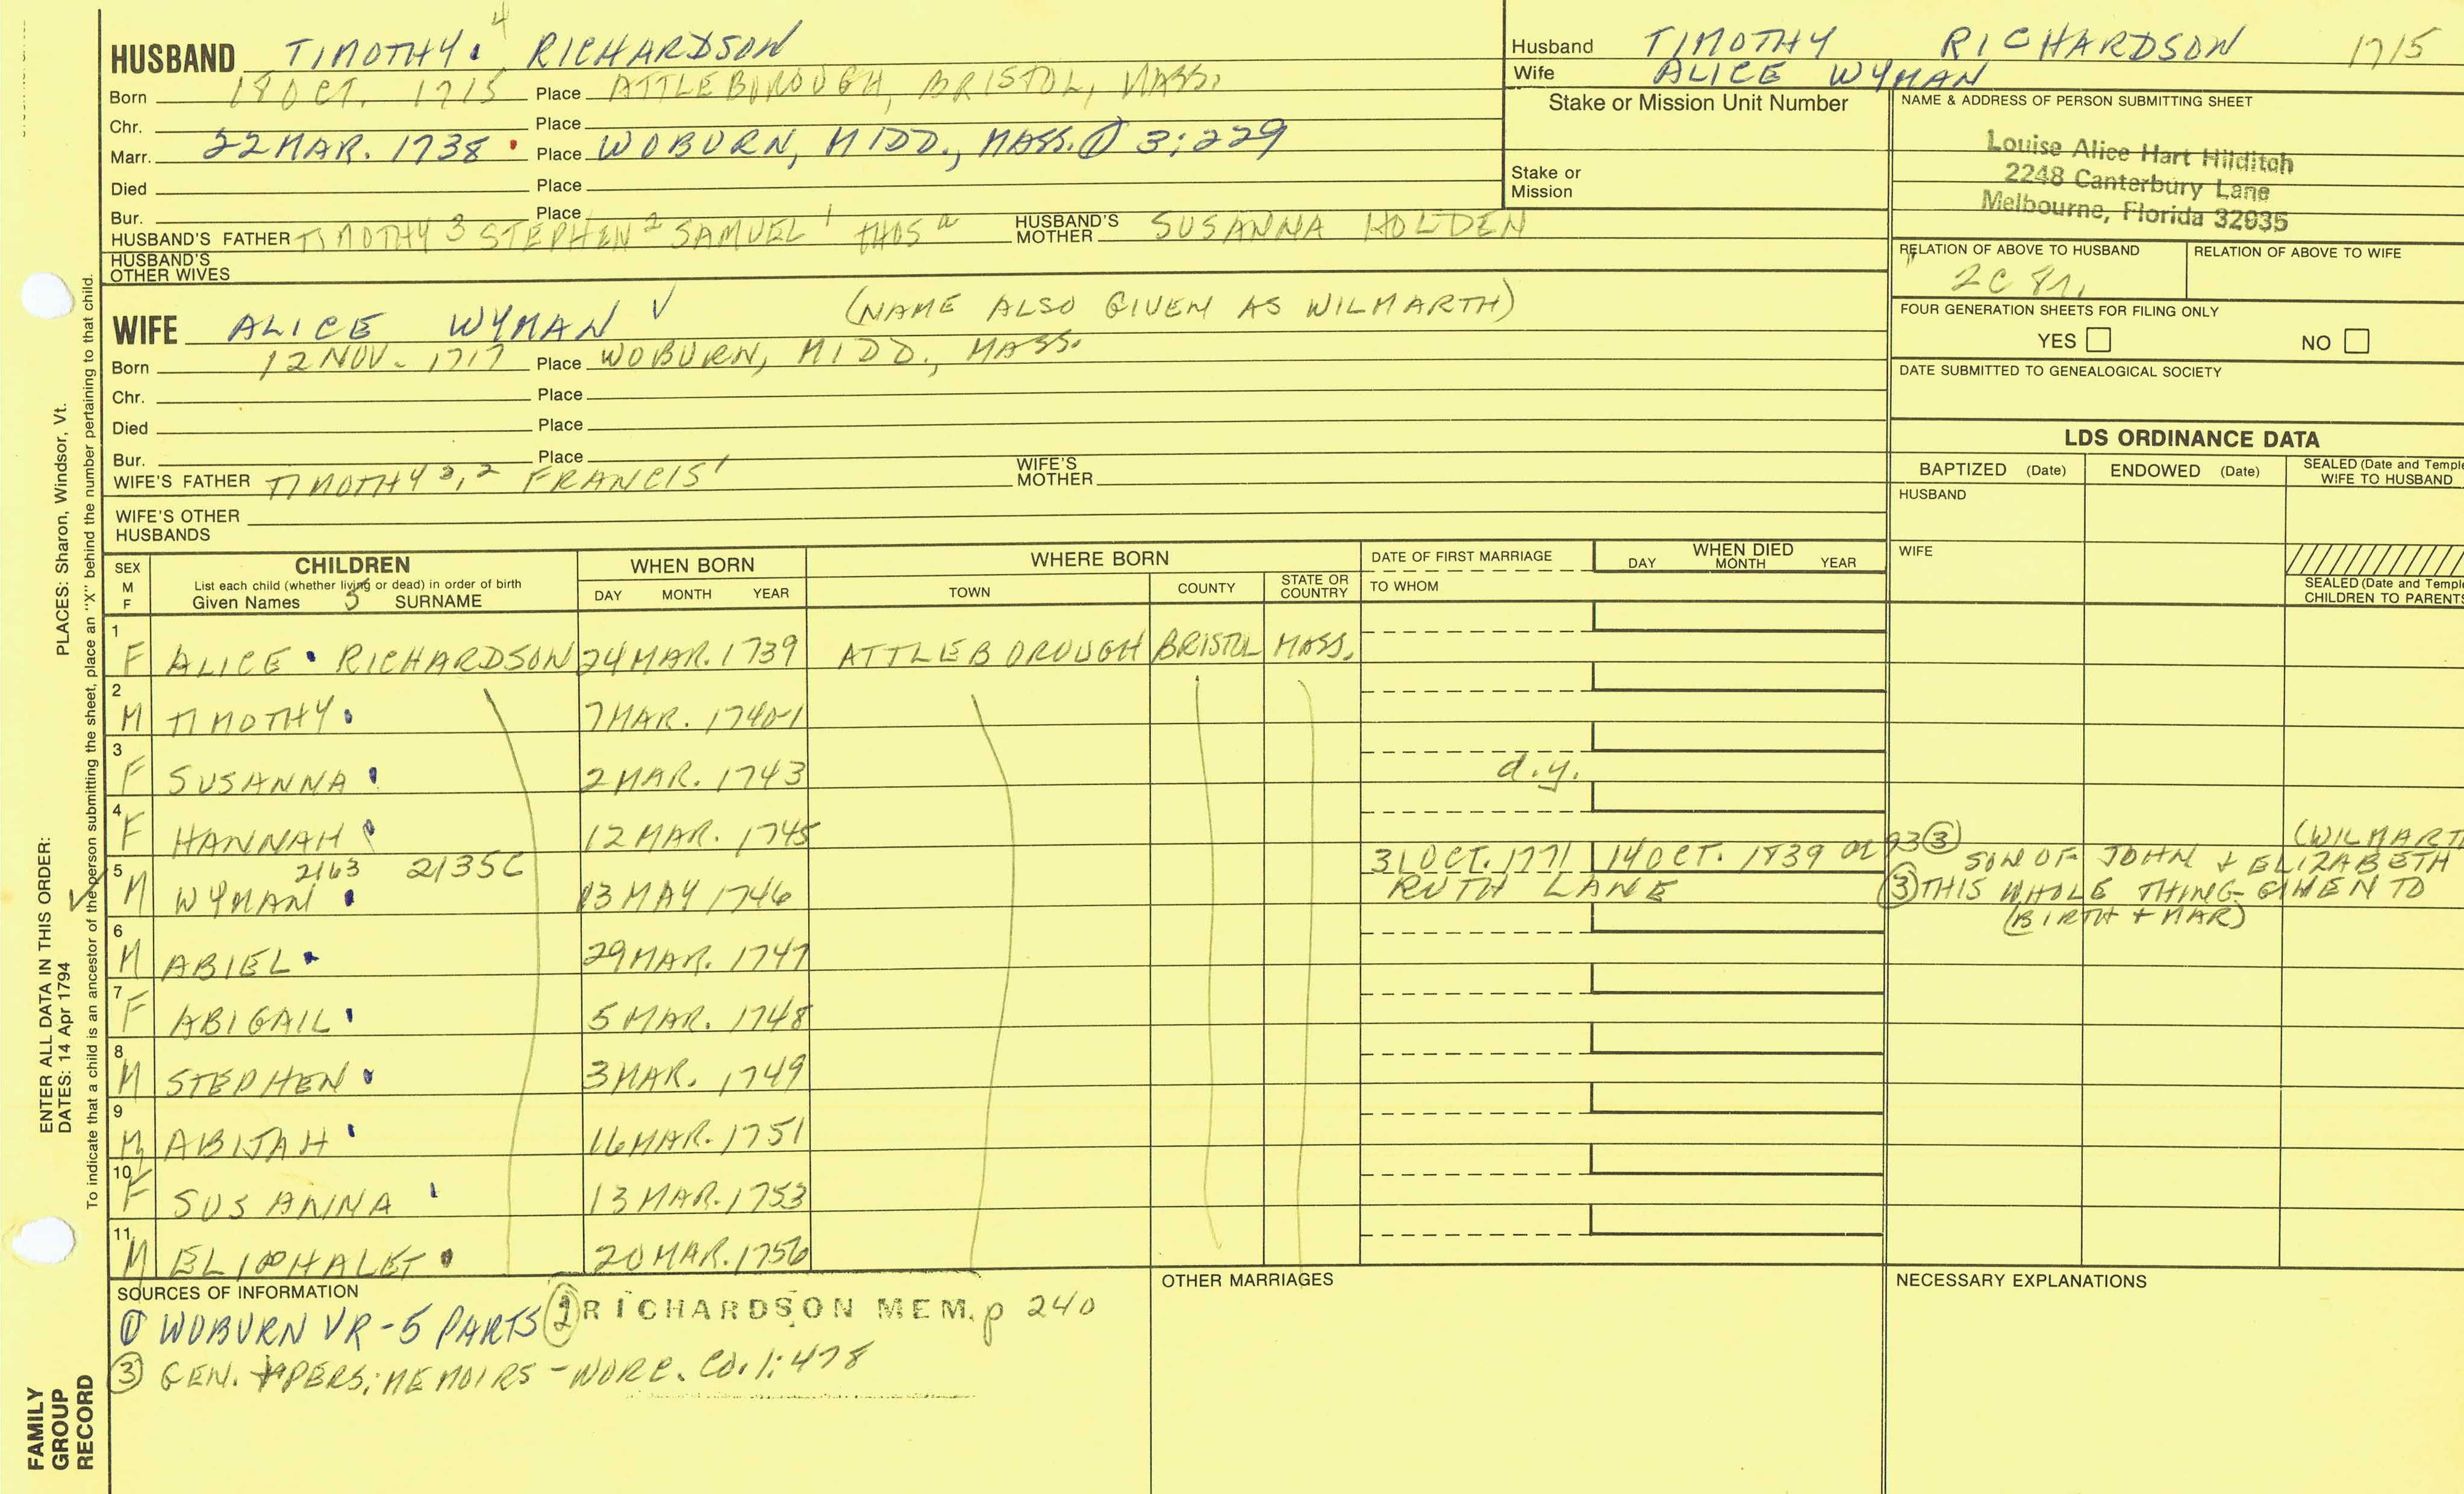 4
HUSBAND TIMOTHY RICHARDSON
Born 18 OCT. 1715 Place ATTLEBOROUGH, BRISTOL, MASS.
Chr. Place
Marr. 22 MAR. 1738 Place WOBURN, MIDD., MASS. ① 3:229
Died Place
Bur. Place
HUSBAND'S FATHER TIMOTHY 3 STEPHEN 2 SAMUEL 1 THOS a HUSBAND'S MOTHER SUSANNA HOLDEN
HUSBAND'S OTHER WIVES
Husband TIMOTHY RICHARDSON 1715
Wife ALICE WYMAN
Stake or Mission Unit Number
Stake or Mission
NAME & ADDRESS OF PERSON SUBMITTING SHEET
Louise Alice Hart Hilditch
2248 Canterbury Lane
Melbourne, Florida 32935
RELATION OF ABOVE TO HUSBAND RELATION OF ABOVE TO WIFE
2C 8r.
FOUR GENERATION SHEETS FOR FILING ONLY
YES NO
DATE SUBMITTED TO GENEALOGICAL SOCIETY
WIFE ALICE WYMAN √ (NAME ALSO GIVEN AS WILMARTH)
Born 12 NOV. 1717 Place WOBURN, MIDD., MASS.
Chr. Place
Died Place
Bur. Place
WIFE'S FATHER TIMOTHY 3,2 FRANCIS 1 WIFE'S MOTHER
WIFE'S OTHER HUSBANDS
LDS ORDINANCE DATA
BAPTIZED (Date) ENDOWED (Date) SEALED (Date and Temple) WIFE TO HUSBAND
HUSBAND
WIFE
SEALED (Date and Temple) CHILDREN TO PARENTS
SEX M F
CHILDREN
List each child (whether living or dead) in order of birth
Given Names 5 SURNAME
WHEN BORN
DAY MONTH YEAR
WHERE BORN
TOWN COUNTY STATE OR COUNTRY
DATE OF FIRST MARRIAGE
TO WHOM
WHEN DIED
DAY MONTH YEAR
1 F ALICE RICHARDSON 24 MAR. 1739 ATTLEBOROUGH BRISTOL MASS.
2 M TIMOTHY 7 MAR. 1740-1
3 F SUSANNA 2 MAR. 1743 d.y.
4 F HANNAH 12 MAR. 1745
2163 2135C
5 M WYMAN 13 MAY 1746 31 OCT. 1771 14 OCT. 1839 æ 93 ③
RUTH LANE
(WILMARTH
SON OF JOHN + ELIZABETH
③ THIS WHOLE THING GIVEN TO
(BIRTH + MAR)
6 M ABIEL 29 MAR. 1747
7 F ABIGAIL 5 MAR. 1748
8 M STEPHEN 3 MAR. 1749
9 M ABIJAH 16 MAR. 1751
10 F SUSANNA 13 MAR. 1753
11 M ELIPHALET 20 MAR. 1756
SOURCES OF INFORMATION
① WOBURN VR - 5 PARTS ② RICHARDSON MEM. p 240
③ GEN. + PERS. MEMOIRS - WORC. CO. 1:478
OTHER MARRIAGES
NECESSARY EXPLANATIONS
ENTER ALL DATA IN THIS ORDER:
DATES: 14 Apr 1794 PLACES: Sharon, Windsor, Vt.
To indicate that a child is an ancestor of the person submitting the sheet, place an "X" behind the number pertaining to that child.
FAMILY GROUP RECORD